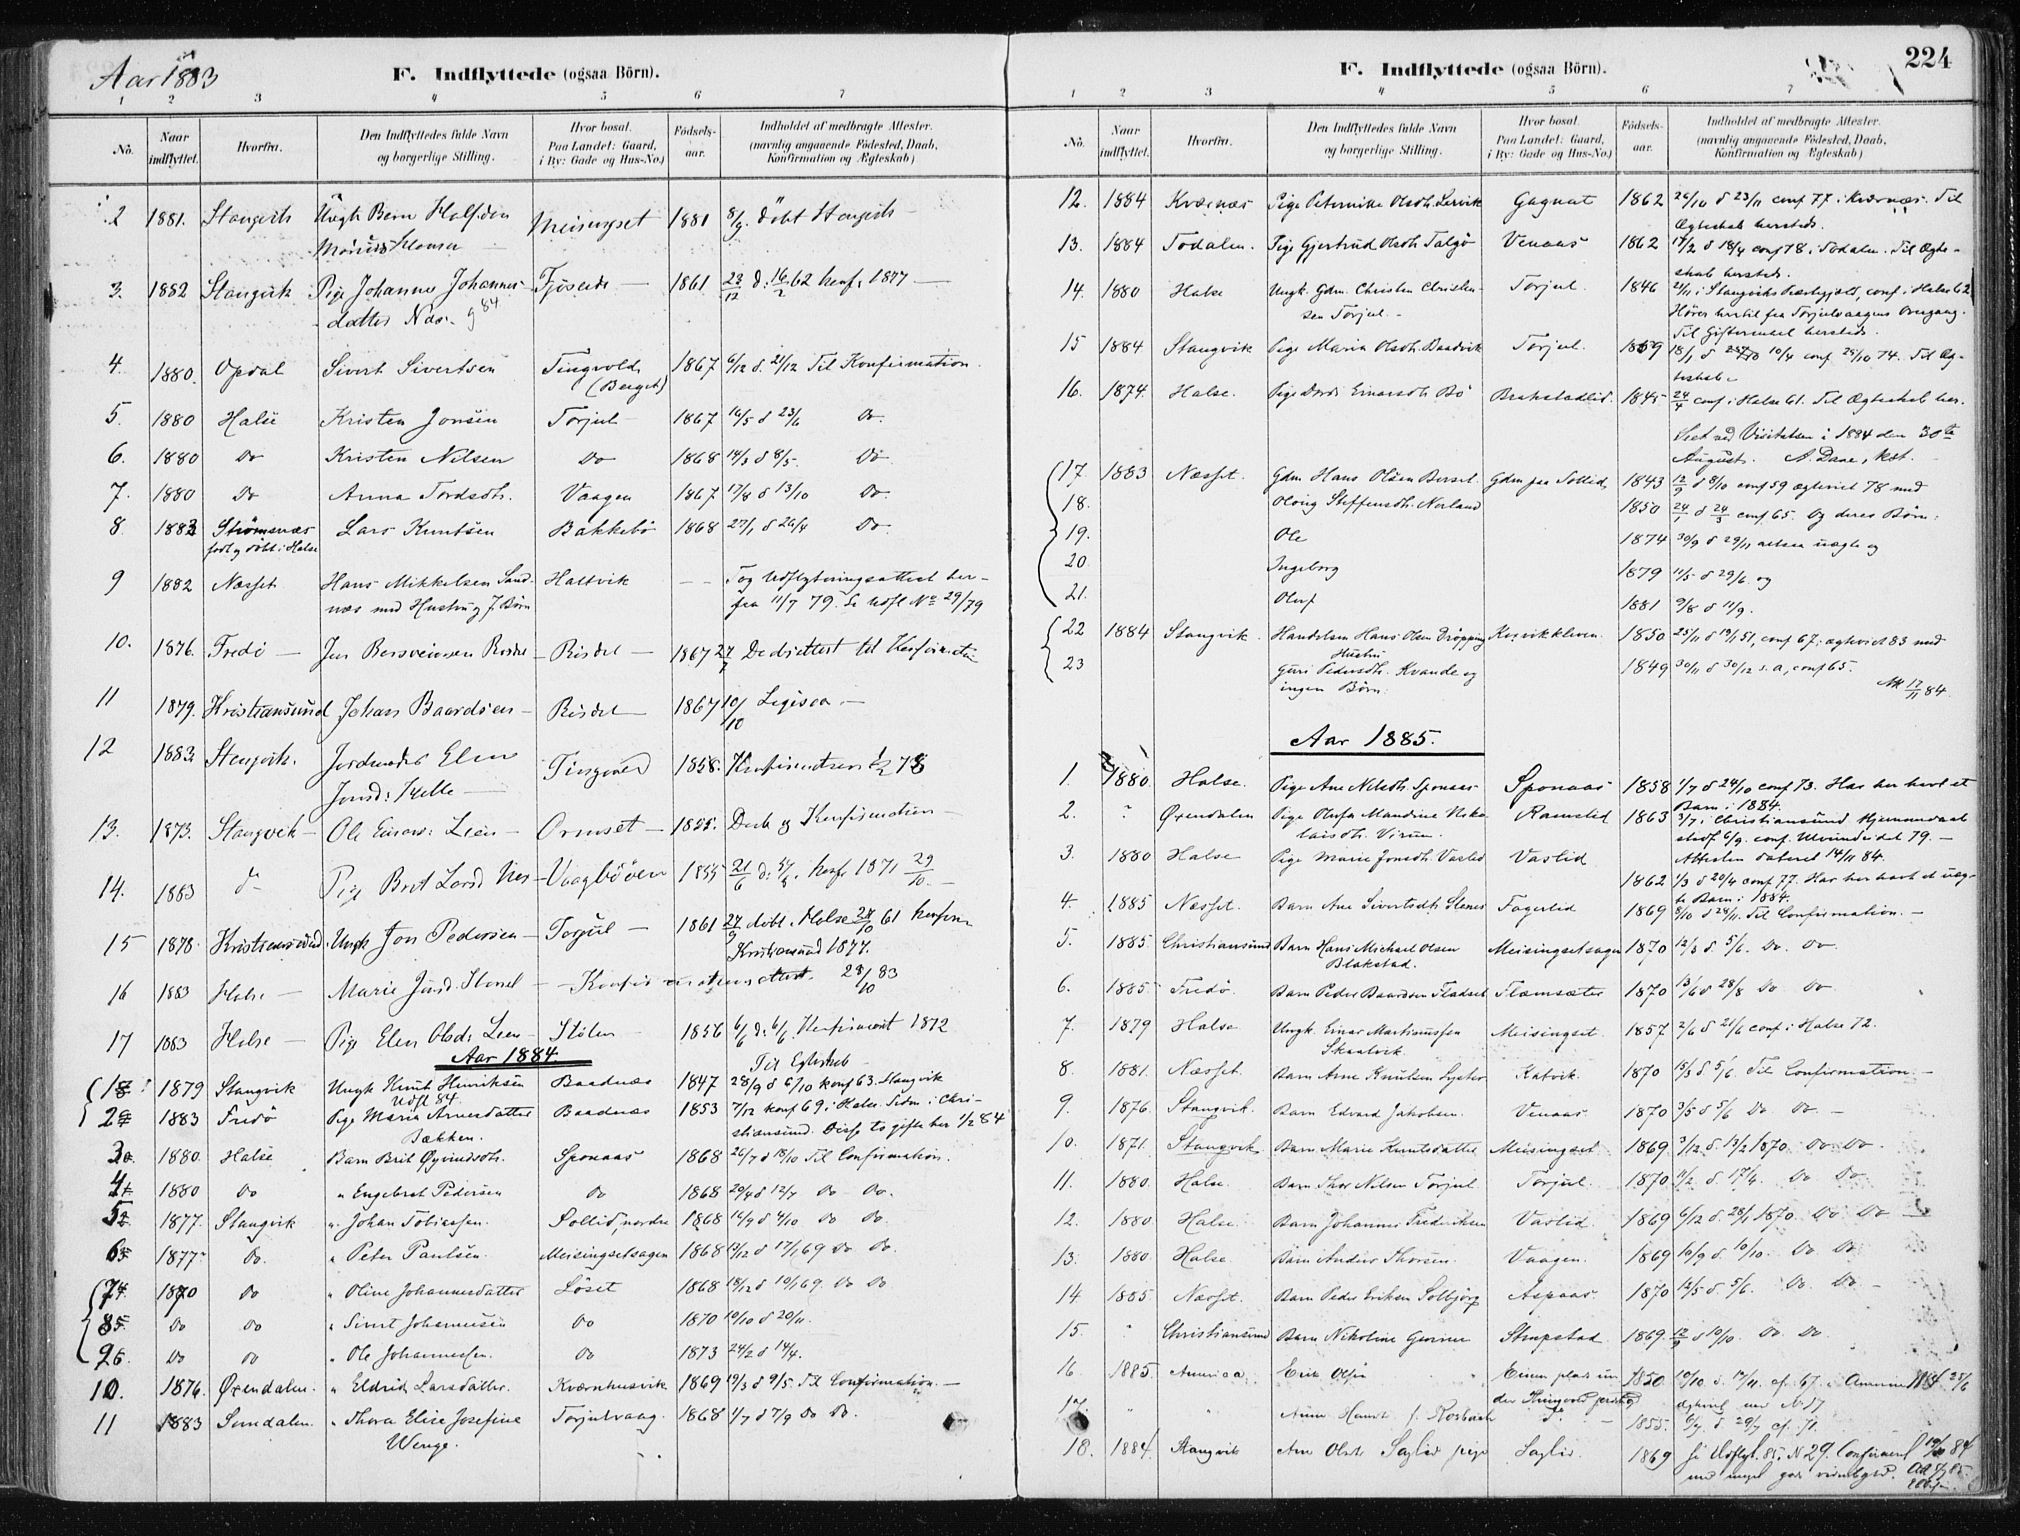 Aar 1883
F. Indflyttede (ogsaa Börn).
1 2 3 4 5 6 7
No.
Naar indflyttet.
Hvorfra.
Den Indflyttedes fulde Navn og borgerlige Stilling.
Hvor bosat. Paa Landet: Gaard, i By: Gade og Hus-No.)
Födsels-aar.
Indholdet af medbragte Attester. (navnlig angaaende Födested, Daab, Konfirmation og Ægteskab)
2 1881. Stangvik Ungk Bern Halfdan Meisingset 1881 8/9. döbt Stangvik
3. 1882 Stangvik Pige Johanne Johannes- 1861 23/12 d: 16/2 62 Konf. 1877
datter Næs. 84
4. 1880. Opdal Sivert Sivertsen Tingvold 1867 6/12 d. 21/12 Til Konfirmation.
(Berget)
5. 1880 Halse Kristen Jonsen Torjul 1867 16/5 d 23/6 Do.
6. 1880 Do Kristen Nilsen Do 1868 14/3 d 8/5. Do
7. 1880 Do Anna Tordsdtr. Vaagen 1867 17/8 d 13/10 Do.
8 1883 Strömsnæs Lars Knutsen Bakkebö 1868 27/1 d 26/4 Do.
fodt og döbt i Halse
9 1882 Næsset Hans Mikkelsen Sand- Haltvik Tog Udflytningsattest her-
næs med Hustru og 7 Börn fra 11/7 79. Se Udfl No 29/79
10. 1876. Fredö Risdal 1867 Daabsattest til Konfirmation
11 1879. Kristiansund Johan Baardsen Risdal 1867 10/10 Ligesaa.
12 1883. Stangvik. Jordmoder Elen Tingvold 1858.
Jonsd:
13. 1873. Stangvik Ole Einars: Lien Ormset Daab og Konfirmation
14. 1883 Pige Brit Larsd Næs Vaagböen 1855 21/6 Konf. 1871 29/10.
15 1878. Kristiansund. Ungk Jon Pedersen Torjul 1861 27/9 döbt i Halse 61 Konfirm.
Kristiansund 1877.
16 1883 Halse Marie Konfirmationsattest. 28/10 83
17 1883 Halse Pige Elen Olsd: Lien Stölen 1856 6/6 d: Konfirmert 1872
Til Egteskab
Aar 1884.
1 1879 Stangvik Ungk Knut Henriksen Baadnæs 1847 28/9 d 6/10 konf 63. Stangvik
Udfl 84.
2 1883 Fredö Pige Marie Arnesdatter Baadnæs 1853 7/12 konf 69 i Halse. Siden i Chri-
Bækken. stiansund. Disse to gifte her 1/2 84
3. 1880. Halse Barn Brit Öyvindsdtr. Sponaas 1868 26/7 d 18/10 Til Confirmation.
4 1880 Do " Engebret Pedersen Do 1868 20/4 d 12/7 Do Do.
5 1877. Stangvik " Johan Tobiassen. Sollid, nordre 1868 14/9 d 4/10 Do Do.
6 1877 Do. " Peter Paulsen. Meisingsetsagen 1868 13/12 d 17/1 69 Do Do.
7 1870 Do " Oline Johannesdatter Löset 1868 18/12 d 10/1 69. Do Do
8 Do Do " Sivert Johannesen Do 1870 10/10 d 20/11.
9 Do Do " Ole Johannessen. Do 1873 24/2 d 14/4.
10. 1876. Øxendalen. " Eldrid Larsdatter. Kværnhusvik 1869 19/3 d 9/5. Til Confirmation.
11 1883 Sundalen. " Thora Elise Josefine Torjulvaag. 1868 1/7 d 7/9 Do Do.
Wenge.
224
F. Indflyttede (ogsaa Börn).
1 2 3 4 5 6 7
No.
Naar indflyttet.
Hvorfra.
Den Indflyttedes fulde Navn og borgerlige Stilling.
Hvor bosat. Paa Landet: Gaard, i By: Gade og Hus-No.)
Födsels-aar.
Indholdet af medbragte Attester. (navnlig angaaende Födested, Daab, Konfirmation og Ægteskab)
12. 1884 Kværnæs Pige Peternikke Olsdtr. Lervik Gagnat 1862 26/10 d 23/11 conf 77 i Kværnæs. Til
Ægteskab hersteds.
13. 1884 Todalen. Pige Gjertrud Olsdtr. Talgö Venaas 1862 17/2 d 18/4 conf 78 i Todalen. Til Ægte-
skab hersteds.
14. 1880 Halse Ungk. Gdm. Christen Christen- Torjul. 1846 21/11 i Stangviks Præstegjæld, conf. i Halse 62
sen Torjul. Hörer hertil fra Torjulvaagens Overgang.
Til Giftermaal hersteds.
15 1884 Stangvik Pige Maria Olsdtr. Baadvik Torjul. 1859 18/1 d 10/4 conf 25/10 74. Til Æg-
teskab.
16. 1874. Halse. Pige Einarsdtr. Bö Brakstadlid. 1845 24/4 conf. i Halse 61. Til Ægteskab her.
Seet ved Visitatsen i 1884 den 30te
August. A. Daae, kst.
17. 1883 Næsset. Gdm. Hans Olsen Berset Gdm paa Sollid 1843 12/9 d 8/10 conf 59 ægteviet 78 med
18. Olvig Steffensdtr. Norland 1850 24/1 d 24/3 conf. 65. Og deres Börn:
19. Ole 1874 30/9 d 29/11 og
20 Ingeborg 1879 11/5 d 29/6 og
21. Oluf 1881 9/8 d 11/9.
22 1884 Stangvik. Handelsm Hans Olsen Dröpping Korsvikleven. 1850 25/11 d 19/1 51, conf 67. ægteviet 83 med
Hustru
23 Guri Pedersdtr. Kvande og 1849 30/11 d 30/12 s.a, conf 65.
ingen Börn. 17/11 84.
Aar 1885.
1. 1880. Halse. Pige Ane Nilsdtr. Sponaas Sponaas 1858 1/7 d 24/10 conf 73. Har her havt et
Barn i 1884.
2. " Øxendalen Pige Olufa Mandrine Niko- Ramslid 1863 3/7 i Christiansund Hjemmedaab
laisdtr. Virum. stadf 6/9. conf. Ulvundeidet 79. -
Attesten dateret 14/11 84.
3. 1880 Halse Pige Marie Jonsdtr. Vaslid Vaslid 1862 1/3 d 20/4 conf 77. Har her havt et uæg-
te Barn i 1884.
4. 1885 Næsset. Barn Ane Sivertsdtr. Stenes Fagerlid 1869 8/10 d 28/11. Til Confirmation. -
5. 1885. Christiansund Barn Hans Michael Olsen Meisingsetsagen 1870 12/3 d. 5/6. Do. Do.
Blakstad.
6. 1885 Fredö. Barn Peder Baardsen Fladset Flemsæter 1870 13/6 d 28/8 Do Do.
7. 1879 Halse Ungk. Einar Martinussen Meisingset. 1857 2/6 d 21/6 conf. i Halse 72.
Skaalvik.
8. 1881. Næsset. Barn Arne Knutsen Lyster Katvik 1870 15/3 d 5/6. Til Confirmation
9. 1876. Stangvik. Barn Edvard Jakobsen. Venaas. 1870 3/5 d 5/6 Do Do. -
10. 1871. Stangvik Barn Marie Knutsdatter Meisingset. 1869. 3/12 d. 13/2 1870 Do Do.
11. 1880. Halse. Barn Thor Nilsen Torjul Torjul. 1870 11/2 d. 17/4. Do Do.
12. 1880 Halse. Barn Johannes Frederiksen Vaslid. 1869 6/12 d. 28/1 1870. Do Do
13. 1880 Halse. Barn Anders Thorsen. Vaagen. 1869 10/9 d. 10/10. Do Do
14 1885 Næsset. Barn Peder Eriksen Solbjörg Aspaas. 1870 12/5 d. 5/6. Do Do
15. " Christiansund Barn Nikoline 1869. 12/9 d 10/10. Do Do.
16 1885. America Erik Olsen 1850
17 " " 1855
18. 1884 Stangvik Ane Olsdtr Saglid pige Saglid 1869 Se Udflyt. 85. N 29.